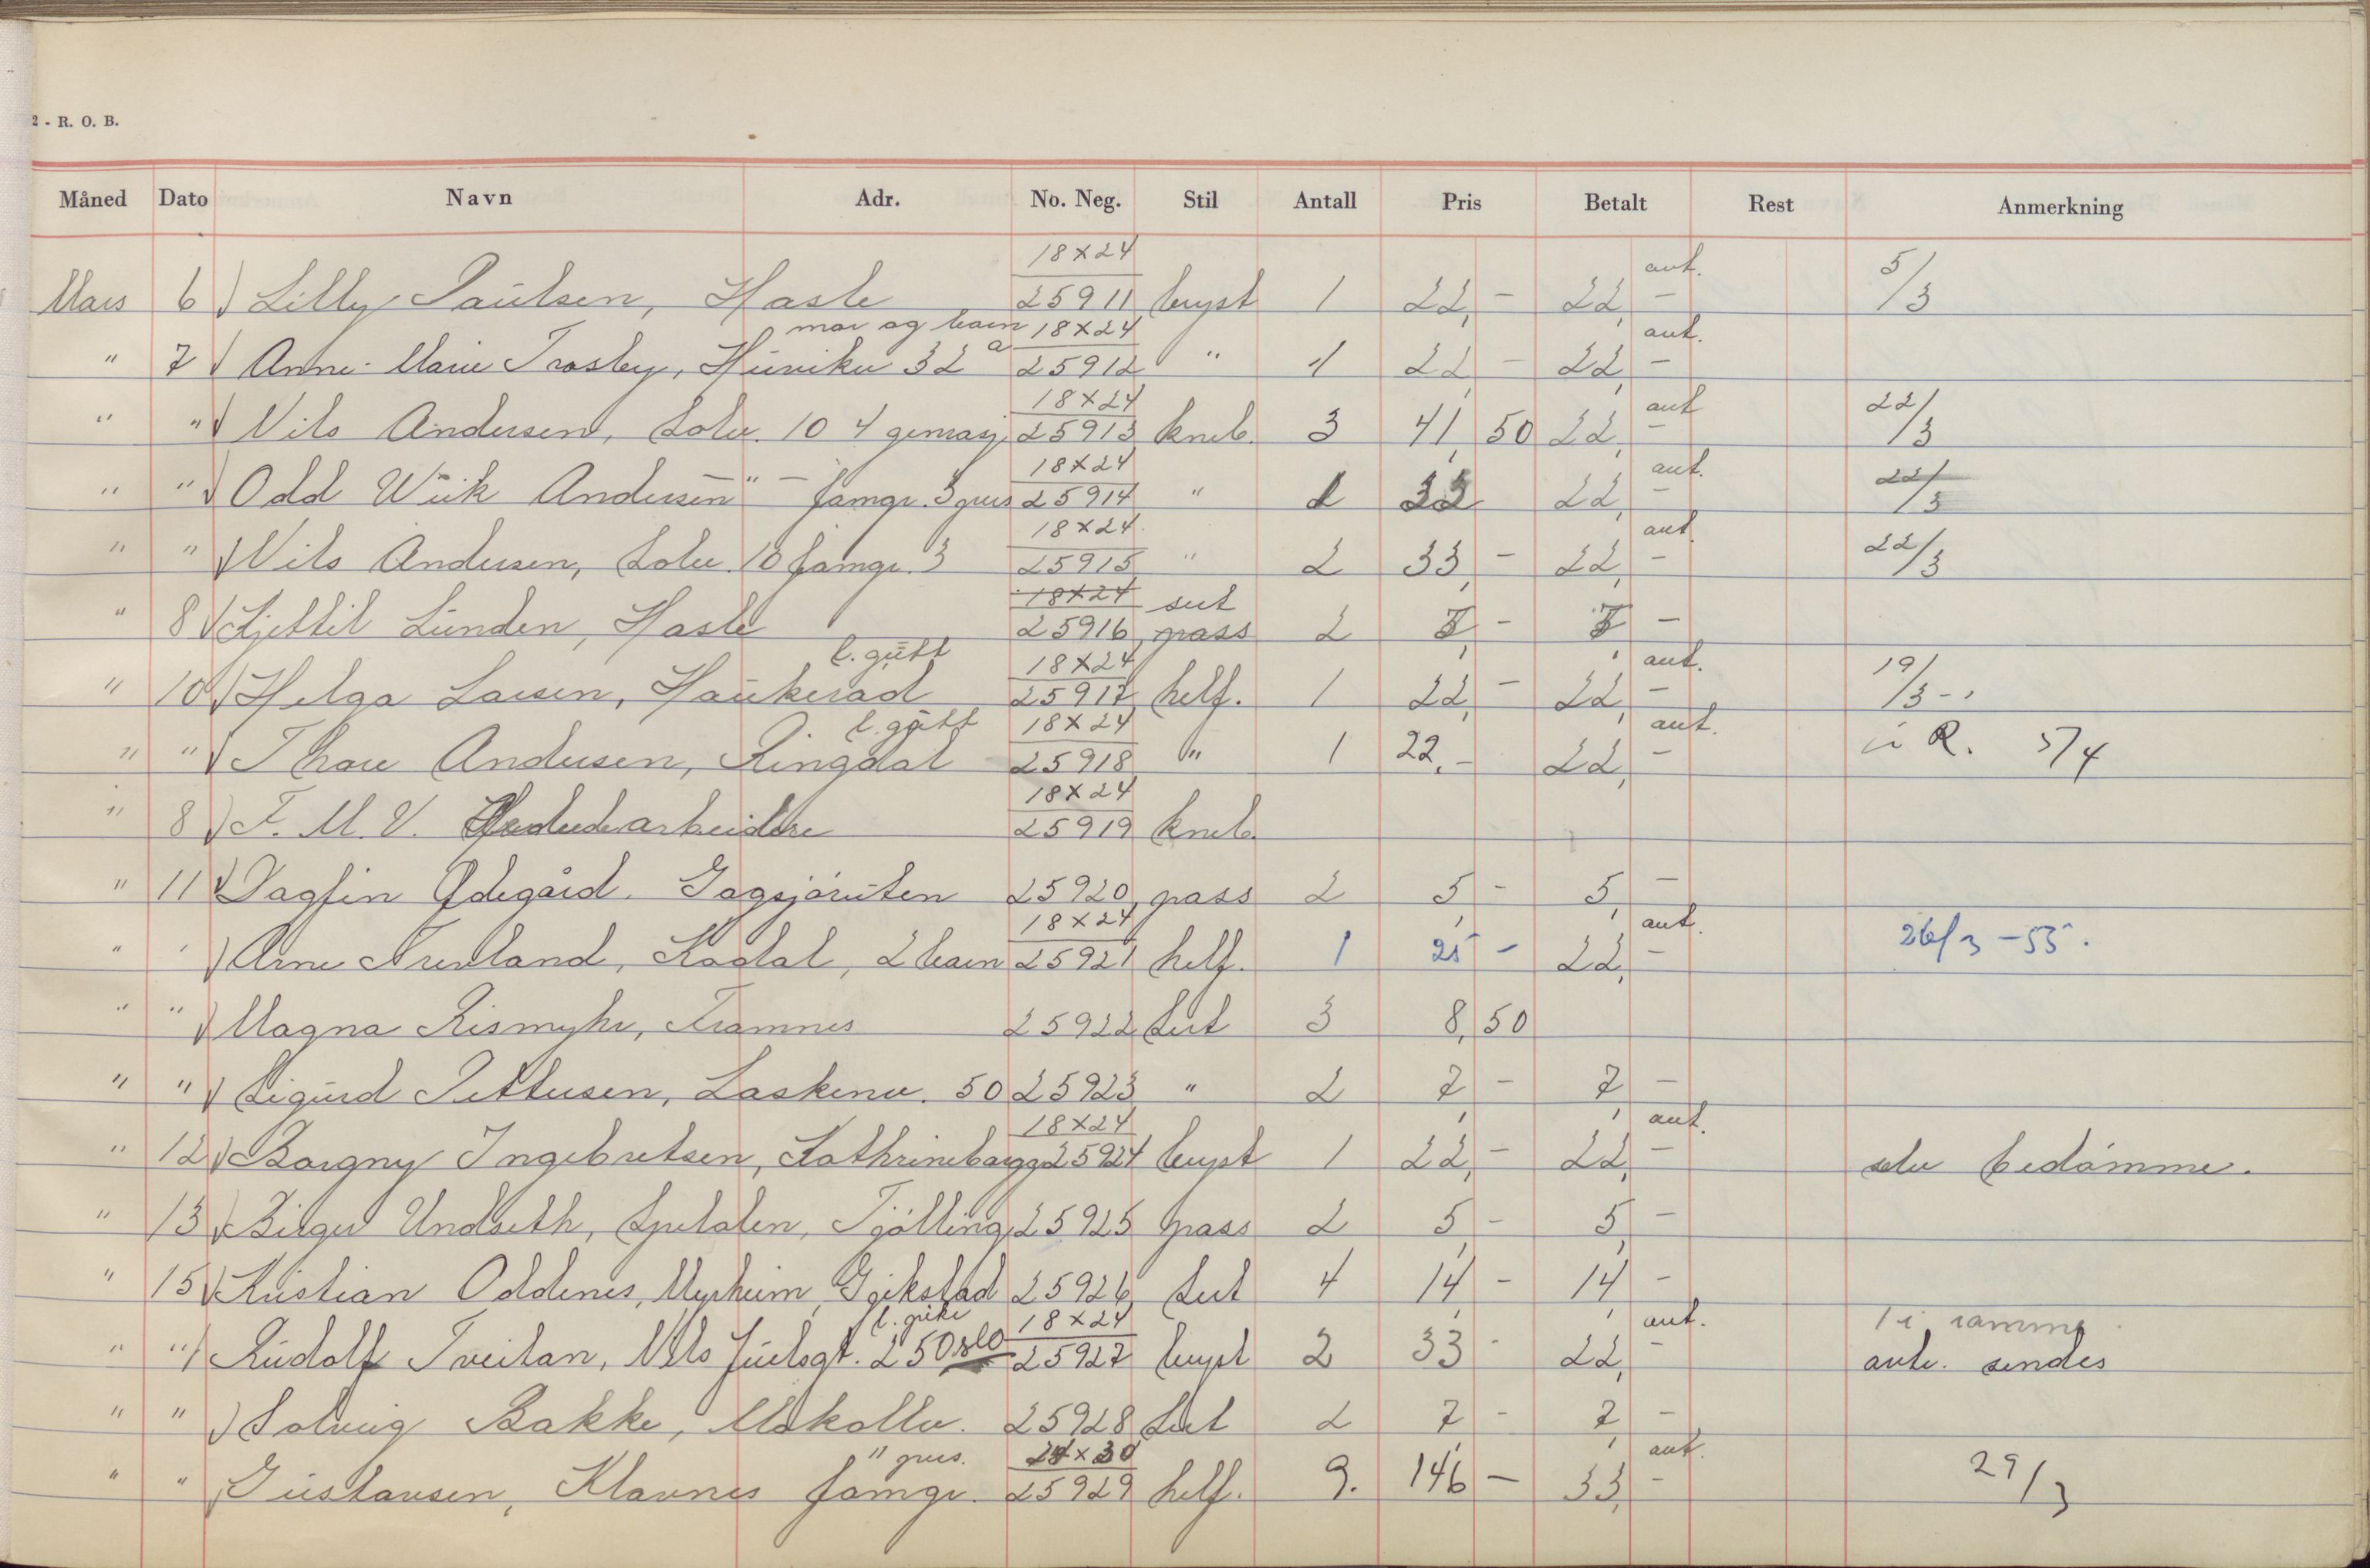 2 - R. O. B.
Måned Dato Navn Adr. No. Neg. Stil Antall Pris Betalt Rest Anmerkning
18×24 ant. 5/3
Mars 6 Lilly Paulsen, Hasle 25911 byst 1 22,- 22,-
mor og barn 18×24 ant.
" 7 Anne-Marie Trosby, 32 a 25912 " 1 22,- 22,-
18×24 ant. 22/3
" " Nils Andersen, Solv. 10 4 25913 kneb. 3 41,50 22,-
18×24 ant. 22/3
" " Odd Wiik Andersen " - famgr. 3 pers 25914 " 22,-
18×24 ant. 22/3
" " Nils Andersen, Solv. 10 famgr. 3 25915 " 2 33,- 22,-
18×24 sut
" 8 Kjettil Lunden, Hasle 25916 pass 2 - -
l. gutt 18×24 ant. 19/3-
" 10 Helga Larsen, Haukerød 25917 helf. 1 22,- 22,-
l. gutt 18×24 ant. i R. 5/4
" " Thore Andersen, Ringdal 25918 " 1 22,- 22,-
18×24
" 8 F. M. V. 25919 kneb.
" 11 Dagfin Ødegård. 25920 pass 2 5,- 5,-
18×24 ant. 26/3-55.
" " Arne, Kodal, 2 barn 25921 helf. 1 25 - 22,-
" " Magna Rismyhr, Framnes 25922 Sut 3 8,50
" " Sigurd Pettersen, Laskenv. 50 25923 " 2 7,- 7,-
18×24 ant.
" 12 Borgny Ingebretsen, 25924 byst 1 22,- 22,- selv bedømme.
" 13 Birger Undseth, Tjølling 25925 pass 2 5,- 5,-
" 15 Kristian Oddenes, Myrheim, Gjekstad 25926 Sut 4 14,- 14,-
l. pike 18×24 ant. 1 i ramme
" " Rudolf Tveitan, Nils Juelsgt. 250slo 25927 byst 2 33 - 22,- sendes
" " Solveig Bakke, Mokollv. 25928 Sut 2 7,- 7,-
11 pers. 24×30 ant. 29/3
" " Gustavsen, Klavnes famgr. 25929 helf. 9. 146 - 33,-